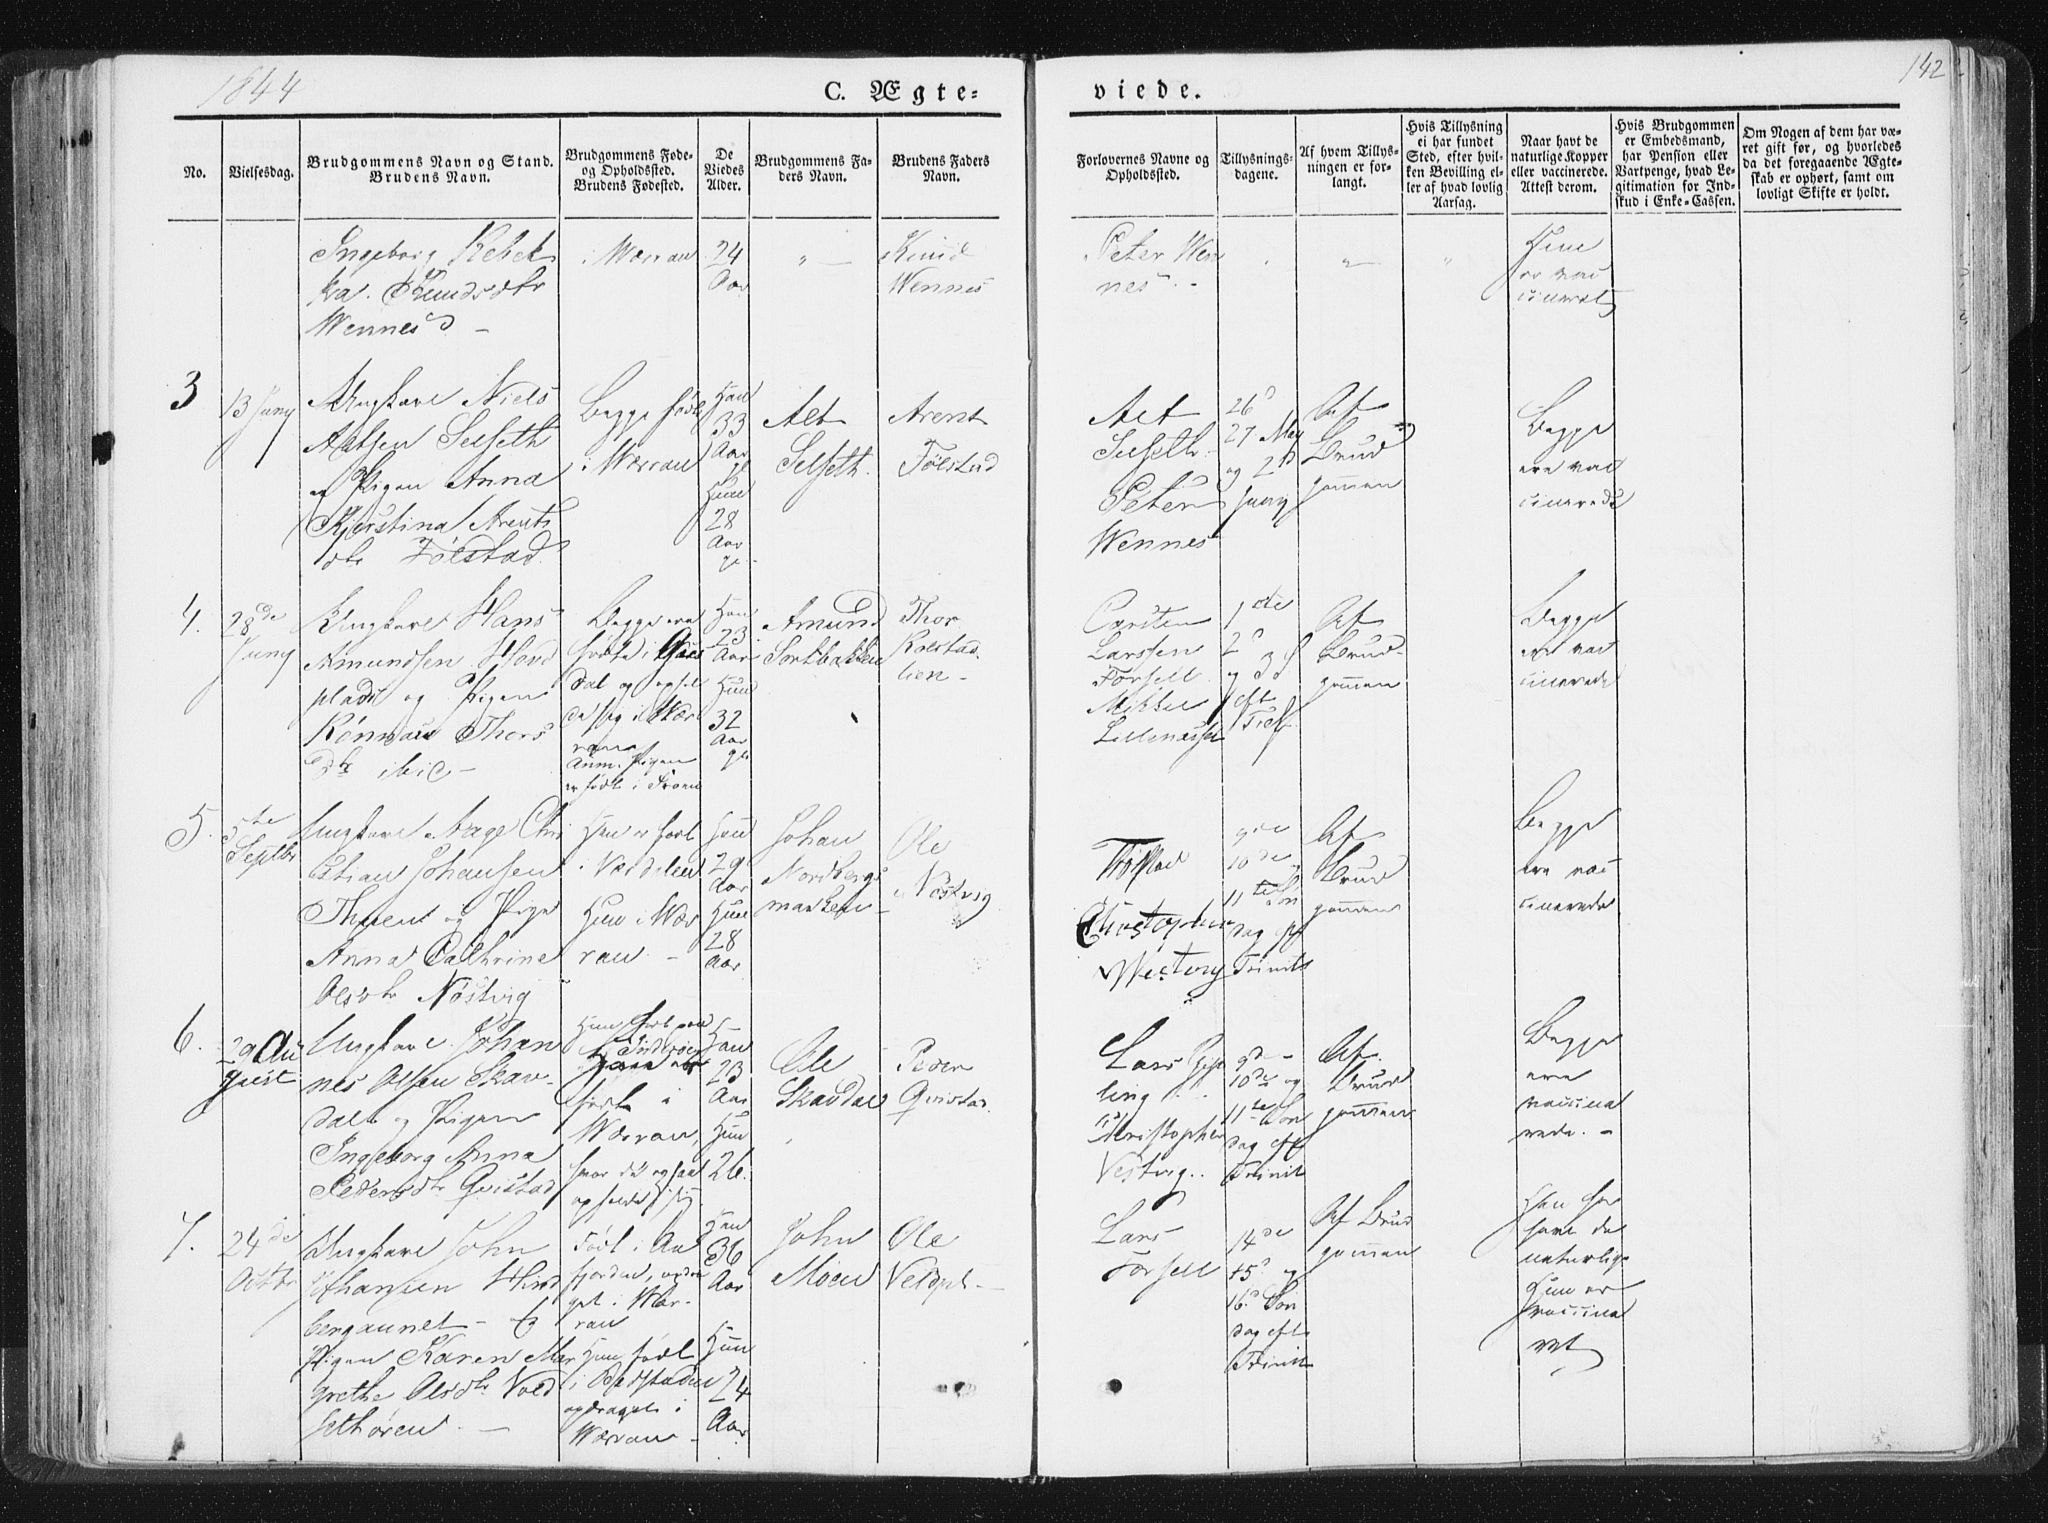 1844
C. Ægte-
viede.
142
No.
Vielsesdag.
Brudgommens Navn og Stand.
Brudens Navn.
Brudgommens Føde-
og Opholdssted.
Brudens Fødested.
De
Viedes
Alder.
Brudgommens Fa-
ders Navn.
Brudens Faders
Navn.
Forlovernes Navne og
Opholdssted.
Tillysnings-
dagene.
Af hvem Tillys-
ningen er for-
langt.
Hvis Tillysning
ei har fundet
Sted, efter hvil-
ken Bevilling el-
ler af hvad lovlig
Aarsag.
Naar havt de
naturlige Kopper
eller vaccinerede.
Attest derom.
Hvis Brudgommen
er Embedsmand,
har Pension eller
Vartpenge, hvad Le-
gitimation for Ind-
skud i Enke-Cassen.
Om Nogen af dem har væ-
ret gift før, og hvorledes
da det foregaaende Ægte-
skab er ophørt, samt om
lovligt Skifte er holdt.
Ingeborg Rebek
ka. Knudsdtr
Wennes
i Værran
24
Aar
Knud
Wennes
Peter Wen
nes
Hun
er vac
cineret
3
13 Juny
Ungkarl Niels
Altsen Selseth
og Pigen Anna
Kjerstina Arents
dtr Følstad
Begge født
i Værran
Han
33
Aar
Hun
28
Aar
Alt
Selseth
Arent
Følstad
Alt
Selseth
Peter
Wennes
26
27 May
og 2d
Juny
Af
Brud
gommen
Begge
ere vac
cinerede
4.
28de
Juny
Ungkarl Hans
Amundsen Hov
plads og Pigen
Rønnau Thors
Dtr ibid
Begge ere
fødte i
dal og ophol
de sig i Vær
ran
Anm. Pigen
er født i
Han
23
Aar
Hun
32
Aar
Amund
Sortbakken
Thor
Kolstad
lien
Carsten
Larssen
Forsell
Mikkel
1ste
2
og 3d S
eft
Tref
Af
Brud-
gommen
Begge
ere vac
cinerede
5.
5te
Septbr
Ungkarl Aage Chri
stian Johansen
og Pige
Anna Cathrine
Olsdtr Nøstvig
Han er født
i Værdalen
Hun i Vær
ran
Han
29
Aar
Hun
28
Aar
Johan
Nordbergs
marken
Ole
Nøstvig
Christopher
Westvig
9de
10de
11te Søn
dag ef
Trinits
Af
Brud
gommen
Begge
ere vac
cinerede
6.
29 Au
gust
Ungkarl Johan
nes Olsen Skav
dal og Pigen
Ingeborg Anna
Pedersdtr Qvistad
født i
Værran,
hvor de ogsaa
opholde sig
Han
23
Aar
Hun
26.
Ole
Skavdal
Peder
Qvistad
Lars
ling
Christopher
Vestvig
9de
10de og
11te Søn
dag eft
Trinit
Af
Brud
gommen
Begge
ere
vaccine
rede.
7.
24de
Octbr
Ungkarl John
Johansen
bergaunet og
Pigen Karen Mar
grethe Olsdtr Vold
Født i
fjorden, opdra
get i Vær-
ran
Hun født
i Beitstaden
opdraget i
Værran
Han
36
Aar
Hun
24
Aar
John
Moen
Ole
Lars
Forsell
14de
15d og
16d Søn
dag eft
Trinit
Af Brud
gommen
Han
havt de
naturlige
Hun er
vaccine
ret